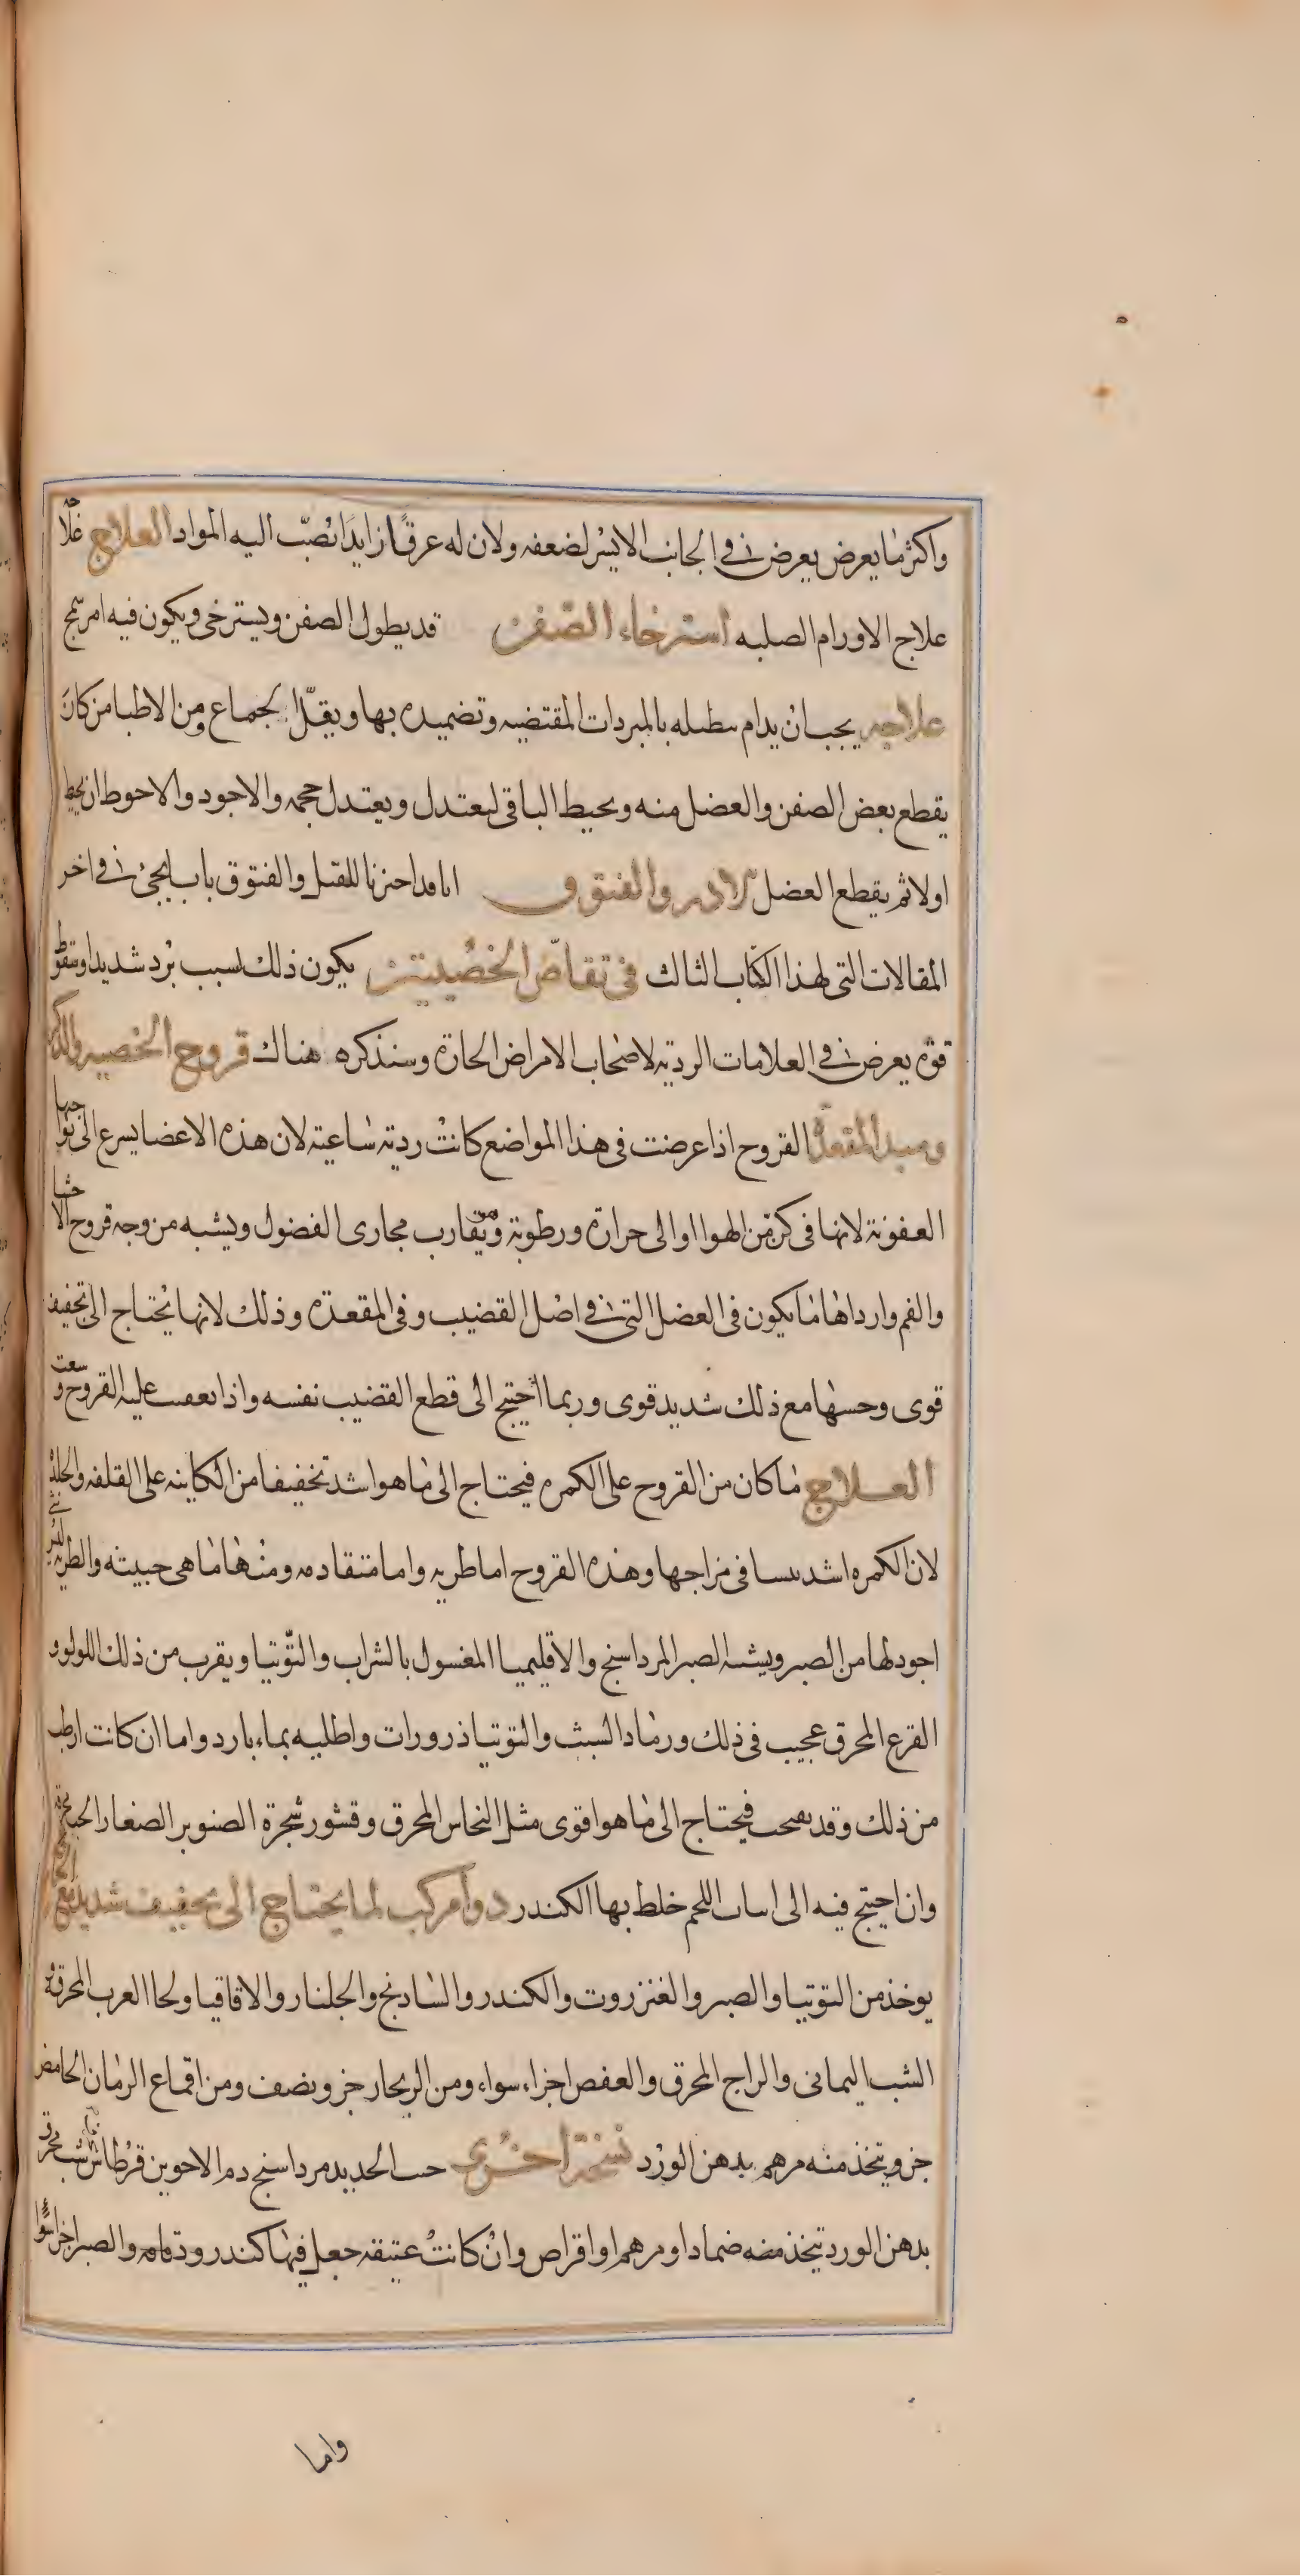 واكثر ما يعرض يعرض في الجانب الايسر لضعفه ولان له عرقًا زايدًا تصبّ اليه المواد العلاج علاجه
علاج الاورام الصلبه استرخاء الصفن قد يطول الصفن ويسترخى ويكون فيه امر سمج
علاجه يجب ان يدام تنطيله بالمبردات المقتضيه وتضميده بها ويقلّ الجماع ومن الاطبا من كان
يقطع بعض الصفن والعضل منه ويحيط الباقى ليعتدل ويعتدل حجمه والاجود والاحوط ان يحيط
اولا ثم يقطع العضل الادره والفتوق انا قد احزنا للقيل والفتوق باب يجئ في اخر
المقالات التى لهذا الكتاب الثالث فى تقلّص الخصيتين يكون ذلك لسبب برد شديد او سقوط
قوّة يعرض في العلامات الرديّه لاصحاب الامراض الحارّة وسنذكره هناك قروح الخصيه والذكر
ومبدا المقعدة القروح اذا عرضت فى هذا المواضع كانت رديّه ساعيته لان هذه الاعضا يسرع الى نواحيها
العفونة لانها فى كنّ من الهوا او الى حرارة ورطوبة ومن تقارب مجارى الفضول ويشبه من وجه قروح الاحشا
والفم وارداها ما يكون فى العضل التى في اصل القضيب وفى المقعدة وذلك لانها يحتاج الى تجفيف
قوى وحسها مع ذلك شديد قوى وربما احتيج الى قطع القضيب نفسه واذا تعفنت عليه القروح وسعت
العلاج ما كان من القروح على الكمره فيحتاج الى ما هو اشد تخفيفا من الكاينه على القلفه والجلد
لان الكمره اشد يبسا فى مزاجها وهذه القروح اما طريه واما متقادمه ومنها ما هى خبيثه والطريه
اجود لها من الصبر ويشبه الصبر المرداسنج والاقليميا المغسول بالشراب والتّوتيا ويقرب من ذلك اللولوو
القرع المحرق عجيب فى ذلك ورماد الشبث والتوتيا ذرورات واطليه بماء بارد واما ان كانت ارطب
من ذلك وقد يصحب فيحتاج الى ما هو اقوى مثل النحاس المحرق وقشور شجرة الصنوبر الصغار الحب
وان احتيج فيه الى انبات اللحم خلط بها الكندر دوا مركب لما يحتاج الى تجفيف شديد
يوخذ من التوتيا والصبر والعنزروت والكندر والشادنج والجلنار والاقاقيا ولحا الغرب المحرقه
الشب اليمانى والزاج المحرق والعفص اجزاء سواء ومن الزنجار جزو ونصف ومن اقماع الرمان الحامض
جزو يتخذ منه مرهم بدهن الورد نسخة اخرى خبث الحديد مرداسنج دم الاخوين قرطاس شب محرق
بدهن الورد يتخذ منه ضماد او مرهم او اقراص وان كانت عتيقه جعل فيها كندر ودقاقه والصبر اجزا سوا
واما